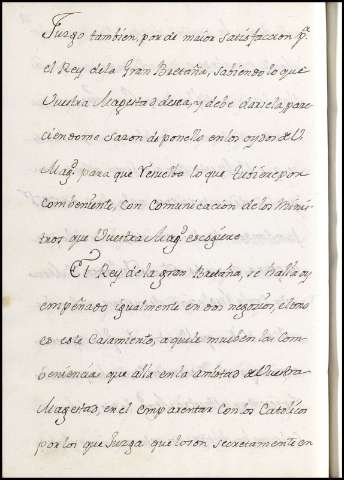 Juzgo tambien, por de maior satisfaccion p.ª
el Rey de la Gran Bretaña, sabiendo lo que
Vuestra Magestad desea, y debe darsela, pare
ciendome sazon de ponello en los oydos de V.
Mag.ᵈ para que resuelba lo que tubiere por
combeniente, con comunicacion de los Minis
tros que Vuestra Mag.ᵈ escogiere
El Rey de la gran Bretaña, se halla oy
empeñado igualmente en dos negocios, el uno
es este Casamiento, a que le mueben las Com
beniencias que alla en la amistad de Vuestra
Magestad, en el emparentar con los Catolicos
por los que Juzga que lo son secretamente en